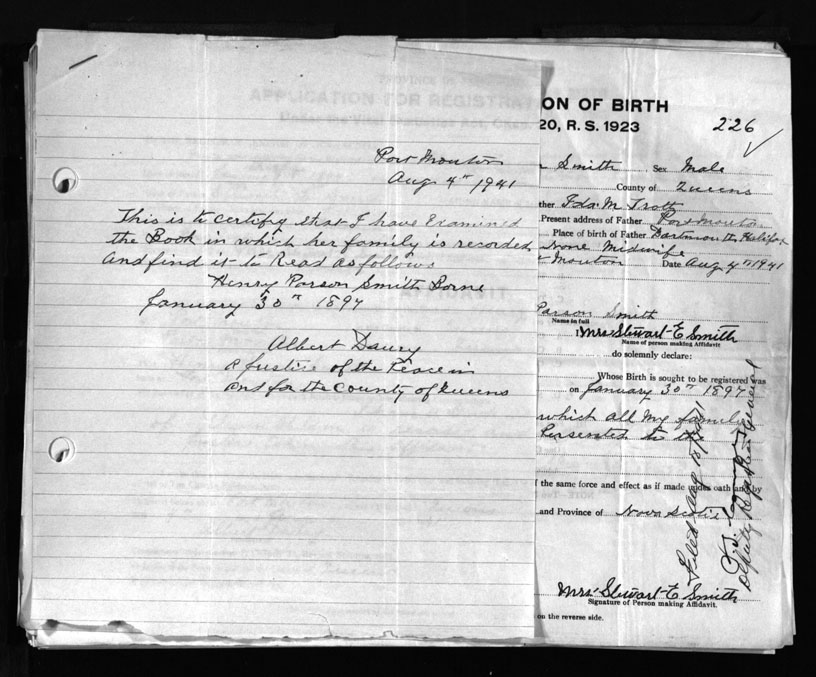 Port Mouton
Aug 4th 1941
This is to certify that I have Examined
the Book in which her family is recorded
and find it to Read as follows
Henry Parson Smith Borne
January 30th 1897
Albert
a Justice of the Peace in
and for the County of Queens
ON OF BIRTH
20, R. S. 1923
226
Smith Sex Male
County of Queens
ther Ida M Trott
Present address of Father Port Mouton
Place of birth of Father Dartmouth Halifax
None Midwife
Mouton Date Aug 4th 1941
Parson Smith
Name in full
I Mrs Stewart E Smith
Name of person making Affidavit
do solemnly declare:
Whose Birth is sought to be registered was
on January 30th 1897
which all my family
to the
f the same force and effect as if made under oath and by
and Province of Nova Scotia
Mrs Stewart E Smith
Signature of Person making Affidavit.
on the reverse side.
Filed Aug
Deputy Registrar General